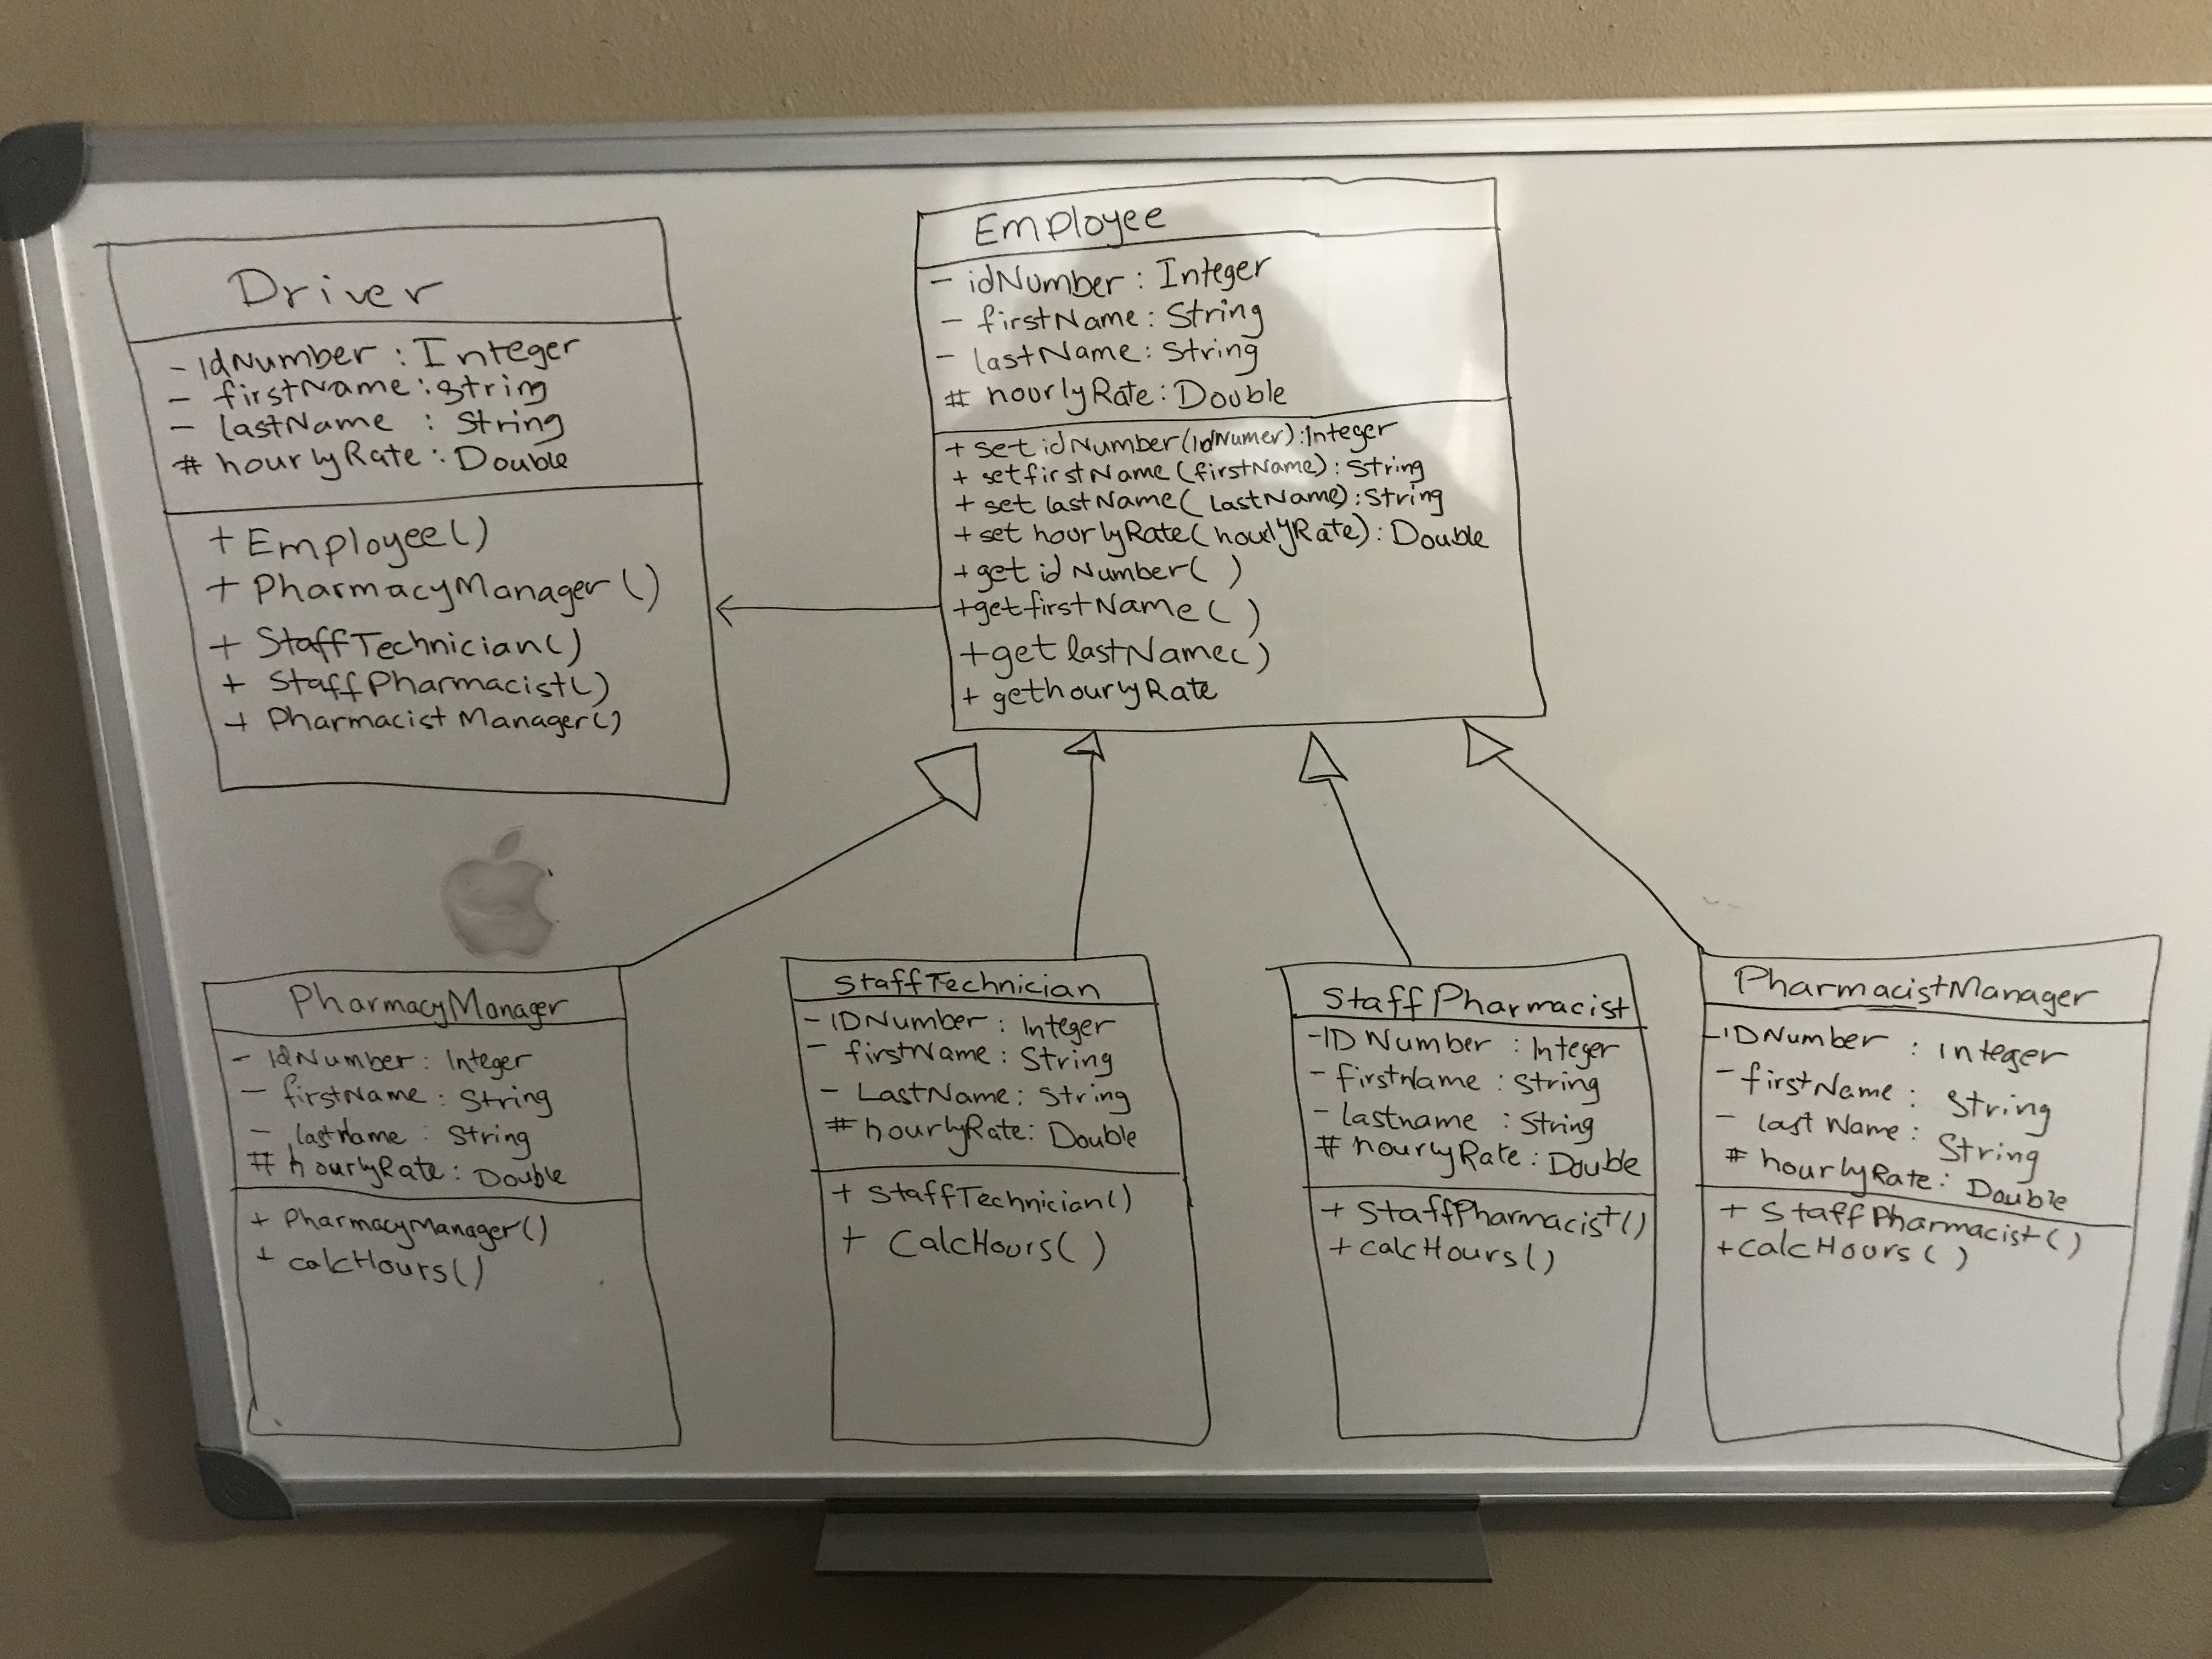 Driver
- IdNumber : Integer
- firstName : String
- lastName : String
# hourlyRate : Double
+ Employee()
+ PharmacyManager()
+ StaffTechnician()
+ StaffPharmacist()
+ Pharmacist Manager()
Employee
- idNumber : Integer
- firstName : String
- lastName : String
# hourlyRate : Double
+ set idNumber(idNumer) : Integer
+ setfirstName (firstName) : String
+ set lastName( lastName) : String
+ set hourlyRate( hourlyRate) : Double
+ get idNumber( )
+ getfirstName ( )
+ get lastName( )
+ gethourlyRate
PharmacyManager
- IdNumber : Integer
- firstName : String
- lastName : String
# hourlyRate : Double
+ PharmacyManager()
+ calcHours()
StaffTechnician
- IDNumber : Integer
- firstName : String
- LastName : String
# hourlyRate : Double
+ StaffTechnician()
+ CalcHours( )
StaffPharmacist
- ID Number : Integer
- firstName : String
- lastname : String
# hourlyRate : Double
+ StaffPharmacist()
+ calcHours()
PharmacistManager
- IDNumber : Integer
- firstName : String
- last Name : String
# hourlyRate : Double
+ StaffPharmacist()
+ calcHours ( )